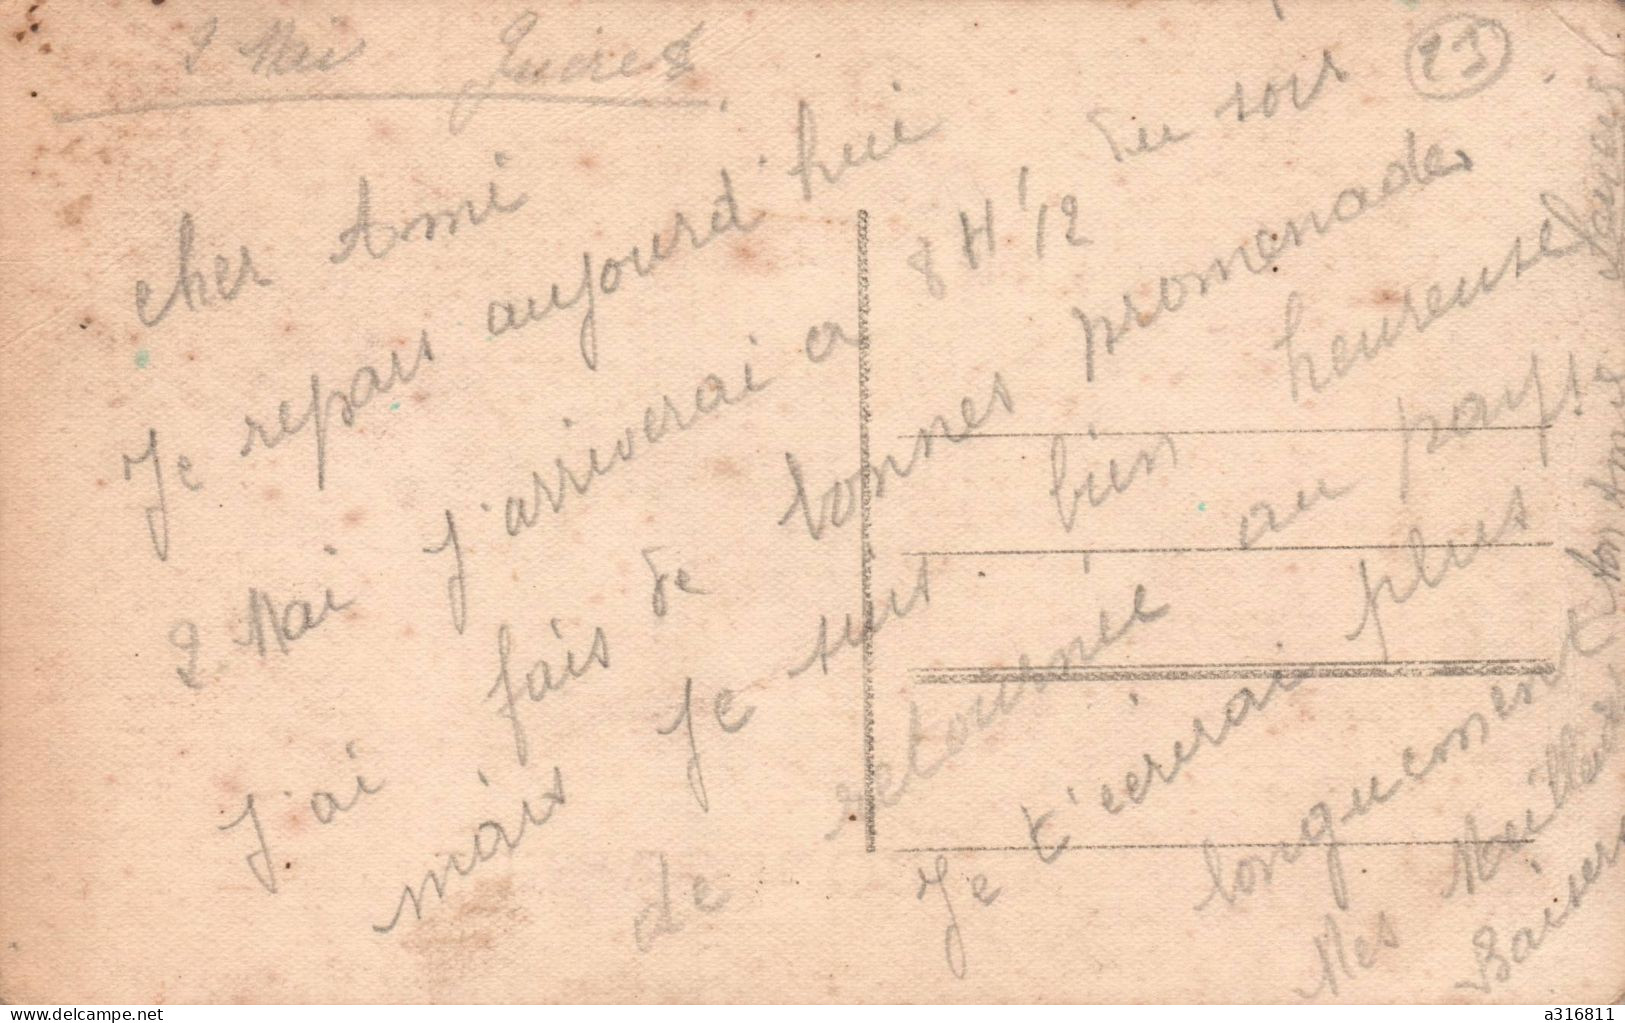 2 Mai
23
cher Ami
Je repars aujourd'hui
2 Mai J'arriverai a 8 H 1/2 du soir
J'ai fais de bonnes promenades
mais Je suis bien heureuse
de retournée au pays!
Je t'écrirai plus
longuement
Mes Meilleurs
Baisers
Ton Amie
delcampe.net
a316811